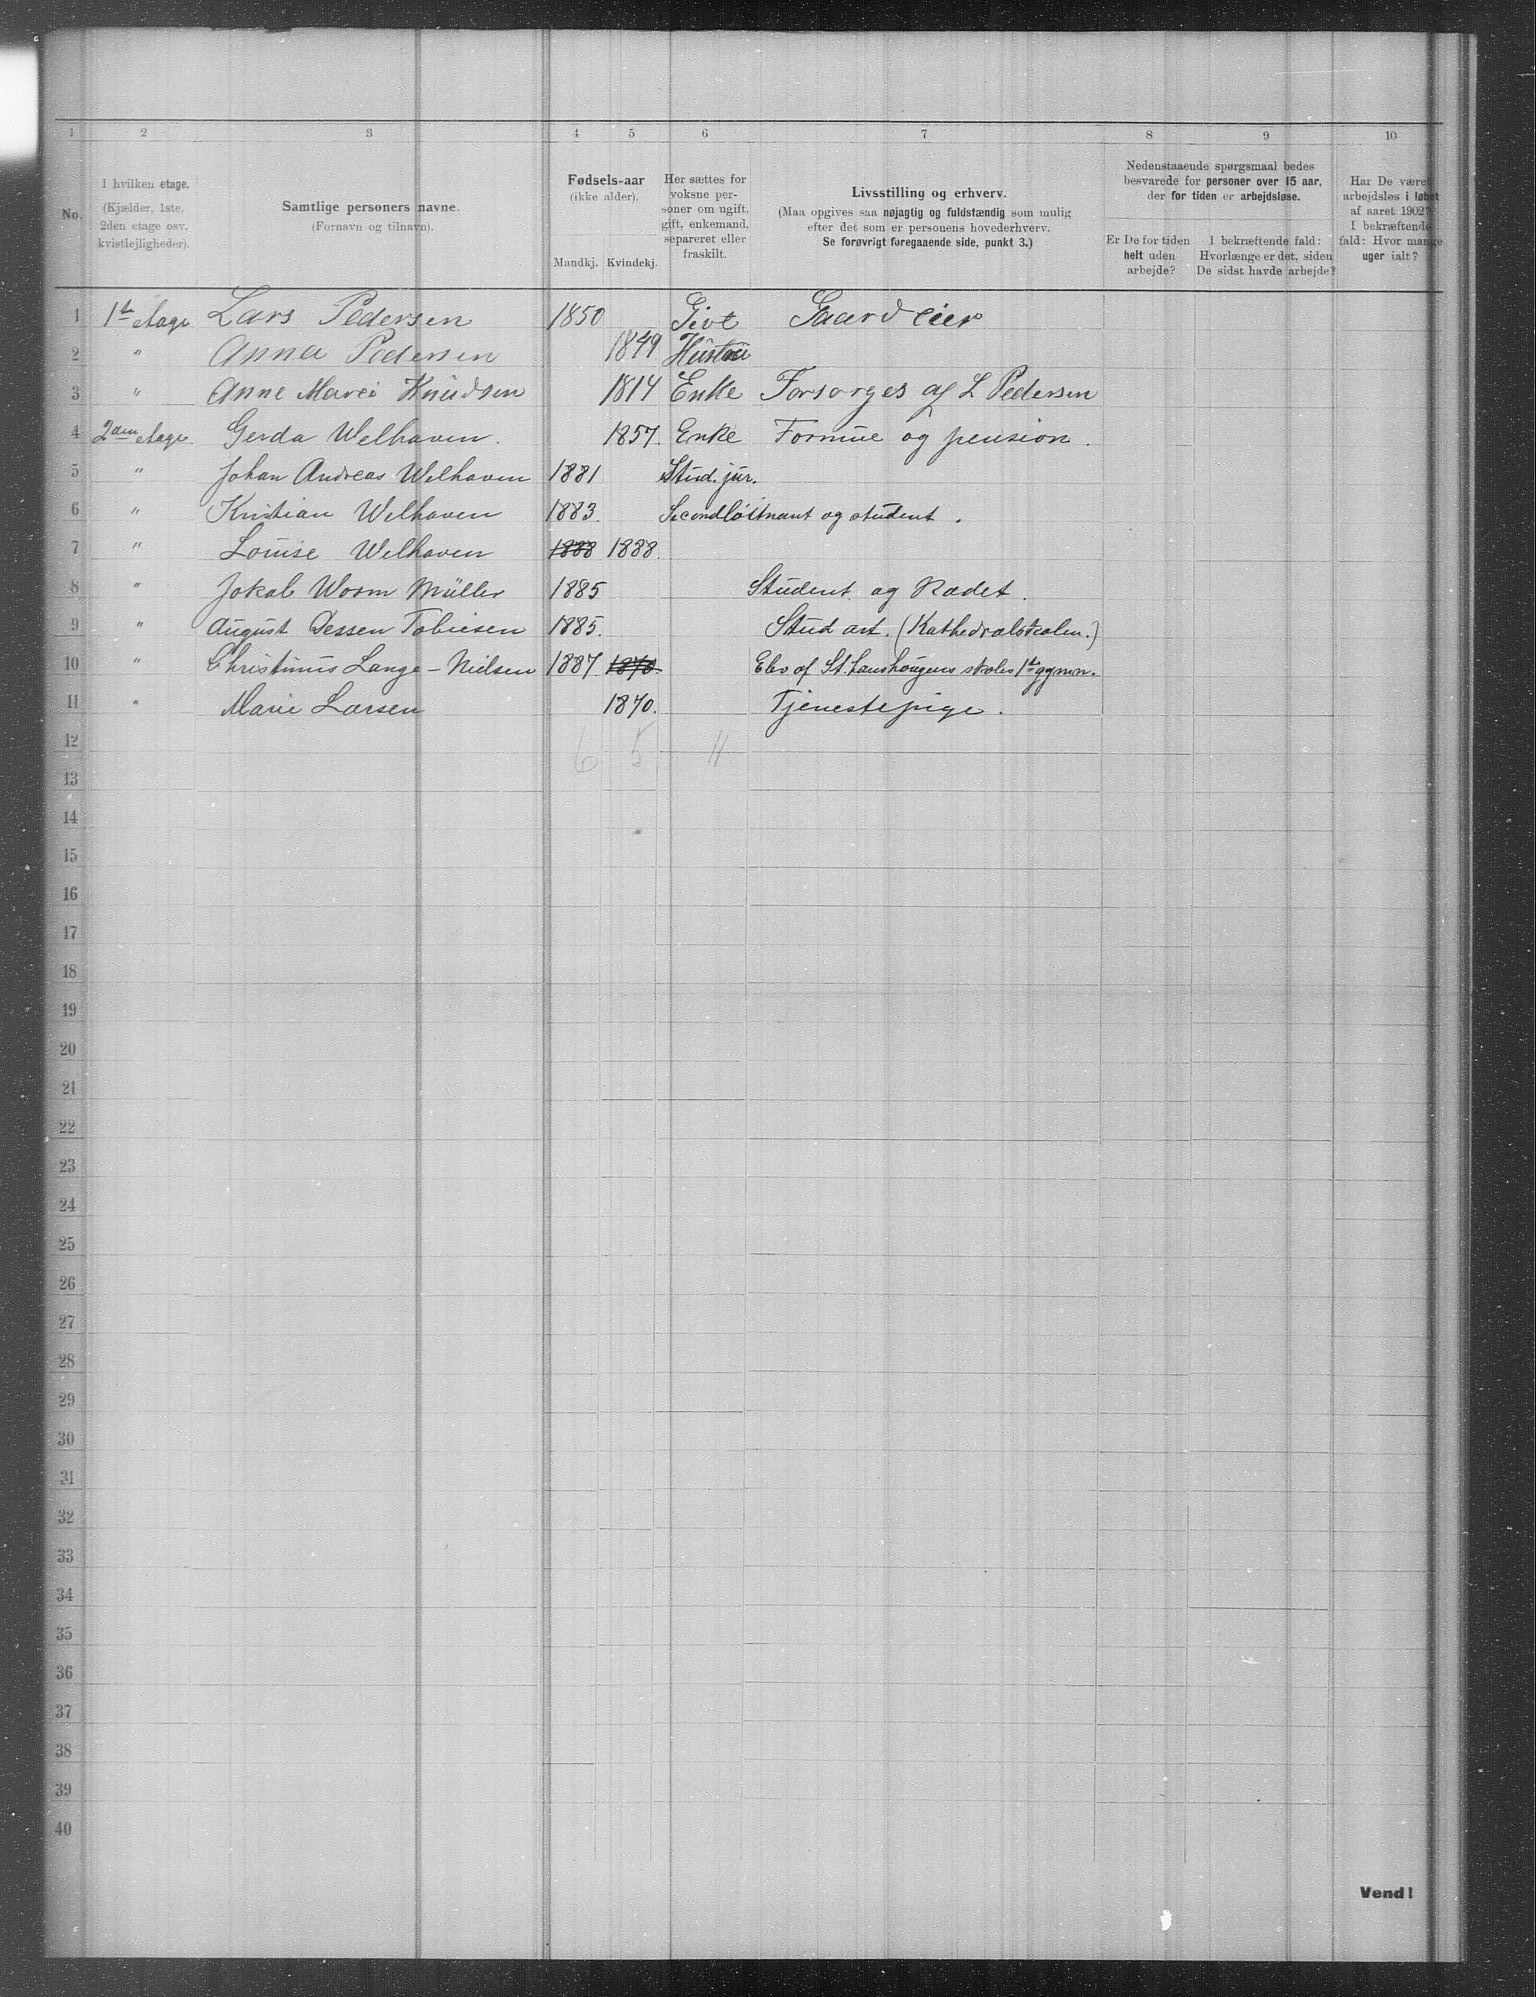 1 2 3 4 5 6 7 8 9 10
No.
I hvilken etage.
(Kjælder, 1ste,
2den etage osv.
kvistlejligheder).
Samtlige personers navne.
(Fornavn og tilnavn).
Fødsels-aar
(ikke alder).
Mandkj. Kvindekj.
Her sættes for
voksne per-
soner om ugift,
gift, enkemand,
separeret eller
fraskilt.
Livsstilling og erhverv.
(Maa opgives saa nøjagtig og fuldstændig som mulig
efter det som er personens hovederhverv.
Se forøvrigt foregaaende side, punkt 3.)
Nedenstaaende spørgsmaal bedes
besvarede for personer over 15 aar,
der for tiden er arbejdsløse.
Er De for tiden
helt uden
arbejde?
I bekræftende fald:
Hvorlænge er det, siden
De sidst havde arbejde?
Har De været
arbejdsløs i løbet
af aaret 1902?
I bekræftende
fald: Hvor mange
uger ialt?
1 1ste etage Lars Pedersen 1850 Givt Gaardeier
2 " Anna Pedersen 1849 Hustru
3 " Anne Marei Knudsen 1814 Enke Forsørges af L Pedersen
4 2den etage Gerda Welhaven. 1857. Enke Formue og pension.
5 " Johan Andreas Welhaven 1881 Stud. jur.
6 " Kristian Welhaven 1883. Secondløitnant og student.
7 " Louise Welhaven 1888 1888.
8 " Jokab Worm Müller 1885 Student og Kadet.
9 " August Dessen Tobiesen 1885. Stud art. (Kathedralskolen.)
10 " Christinus Lange-Nielsen 1887. 1870. Elev af St. Hanshaugens skoles 1ste gymn.
11 " Marie Larsen 1870. Tjenestepige.
12 6 5 11
13
14
15
16
17
18
19
20
21
22
23
24
25
26
27
28
29
30
31
32
33
34
35
36
37
38
39
40
Vend!